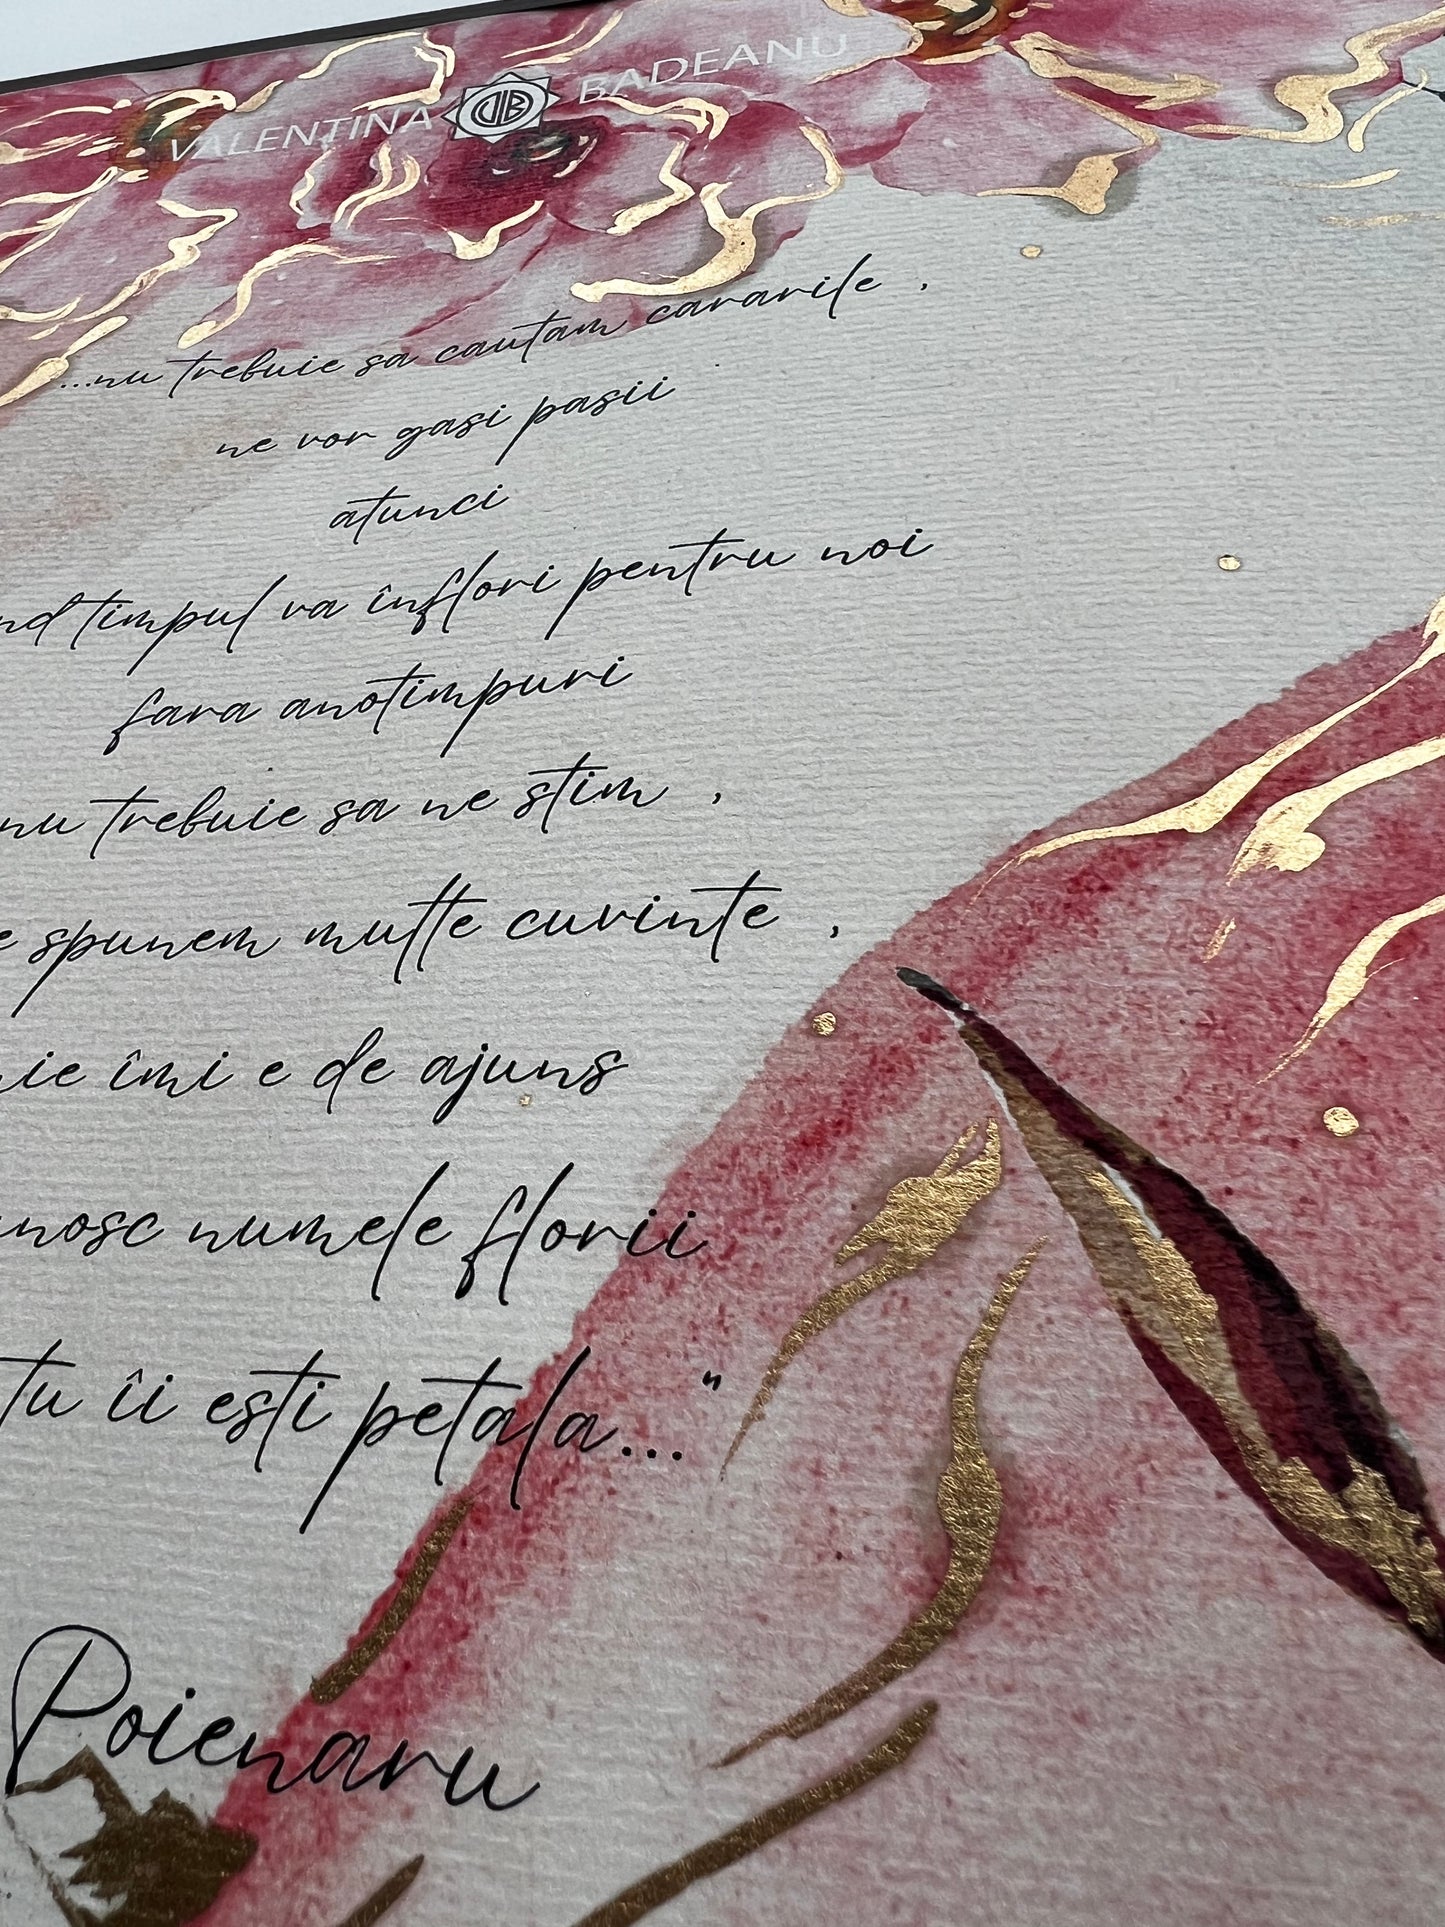 VALENTINA DB BADEANU
...nu trebuie sa cautam cararile ,
ne vor gasi pasii
atunci
timpul va înflori pentru noi
fara anotimpuri
nu trebuie sa ne stim ,
spunem multe cuvinte ,
îmi e de ajuns
numele florii
tu îi esti petala..."
Poienaru